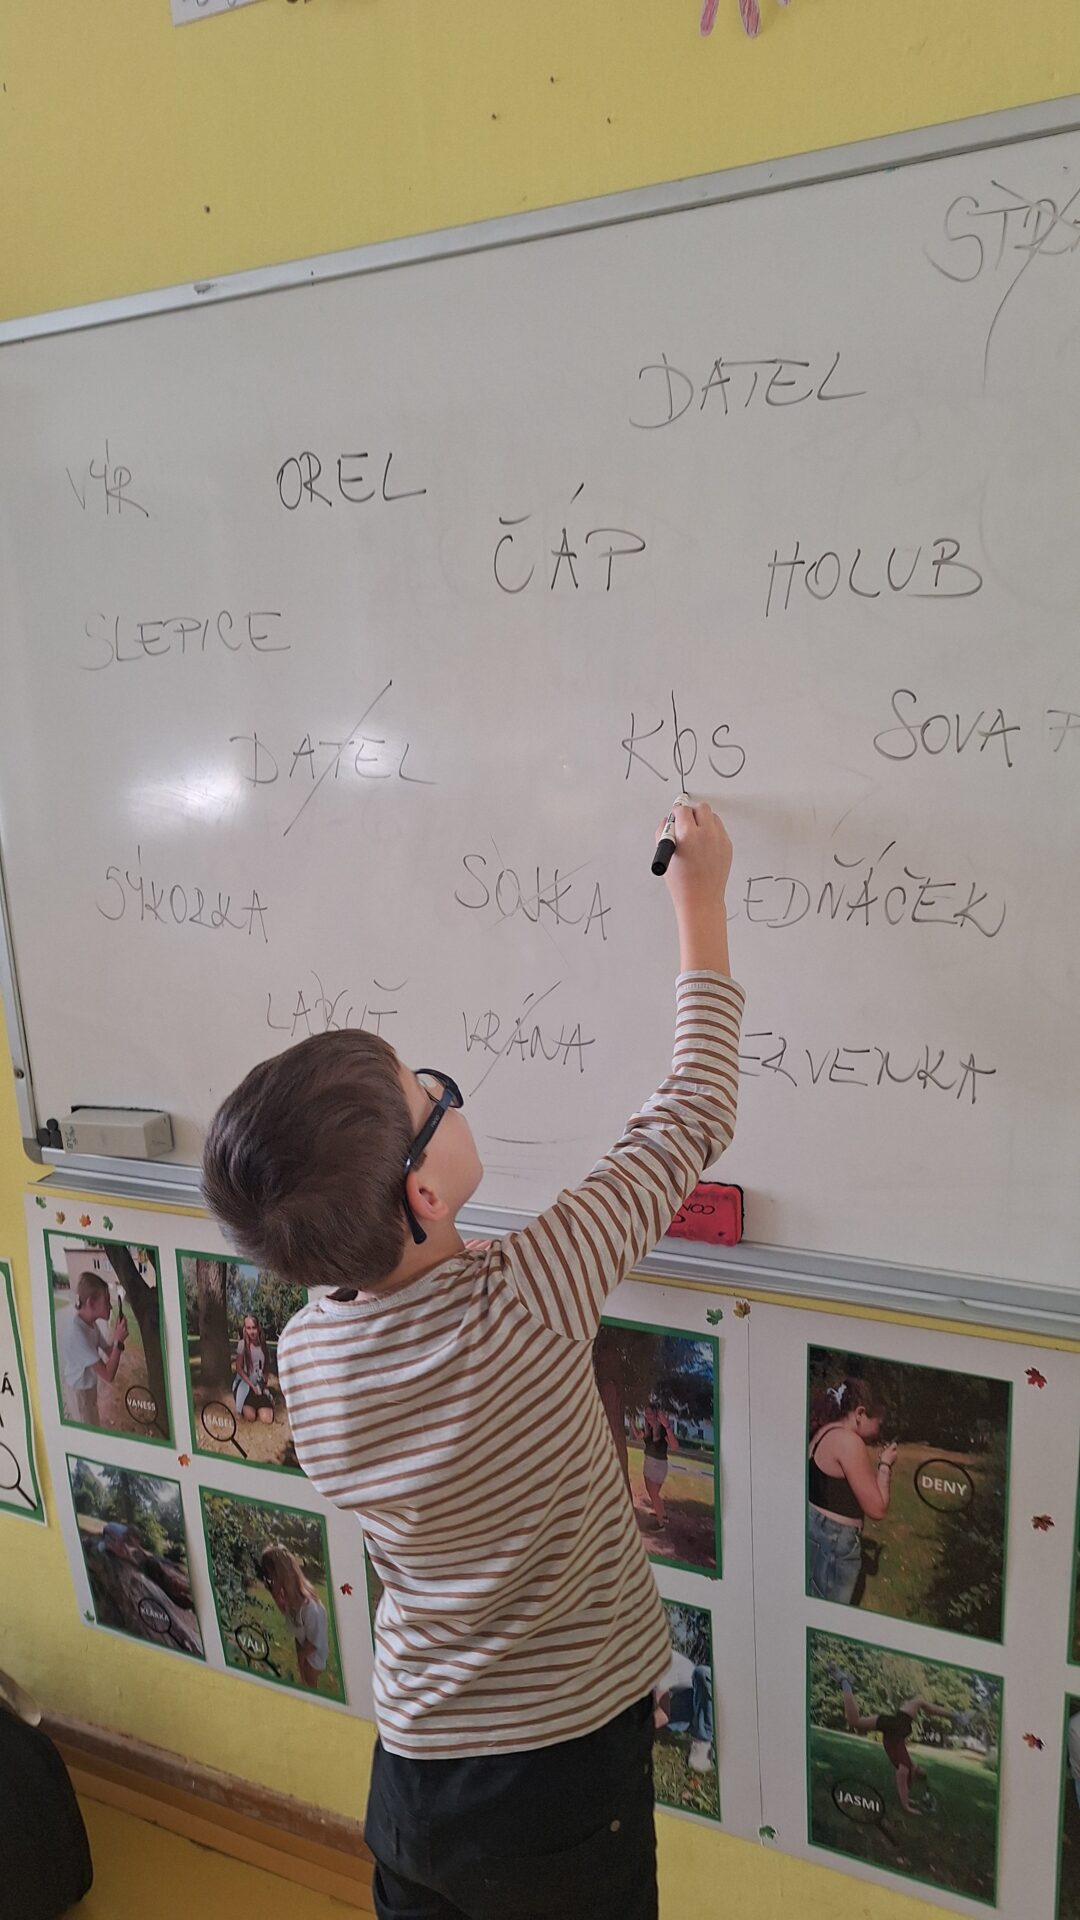 DATEL
VÝR
OREL
ČÁP
HOLUB
SLEPICE
DATEL
KOS
SOVA
SÝKORKA
SOJKA
EDŇÁČEK
LAKUŤ
VRÁNA
ERVENKA
VANESS
ISABEL
DENY
KLÁRKA
VALI
JASMI